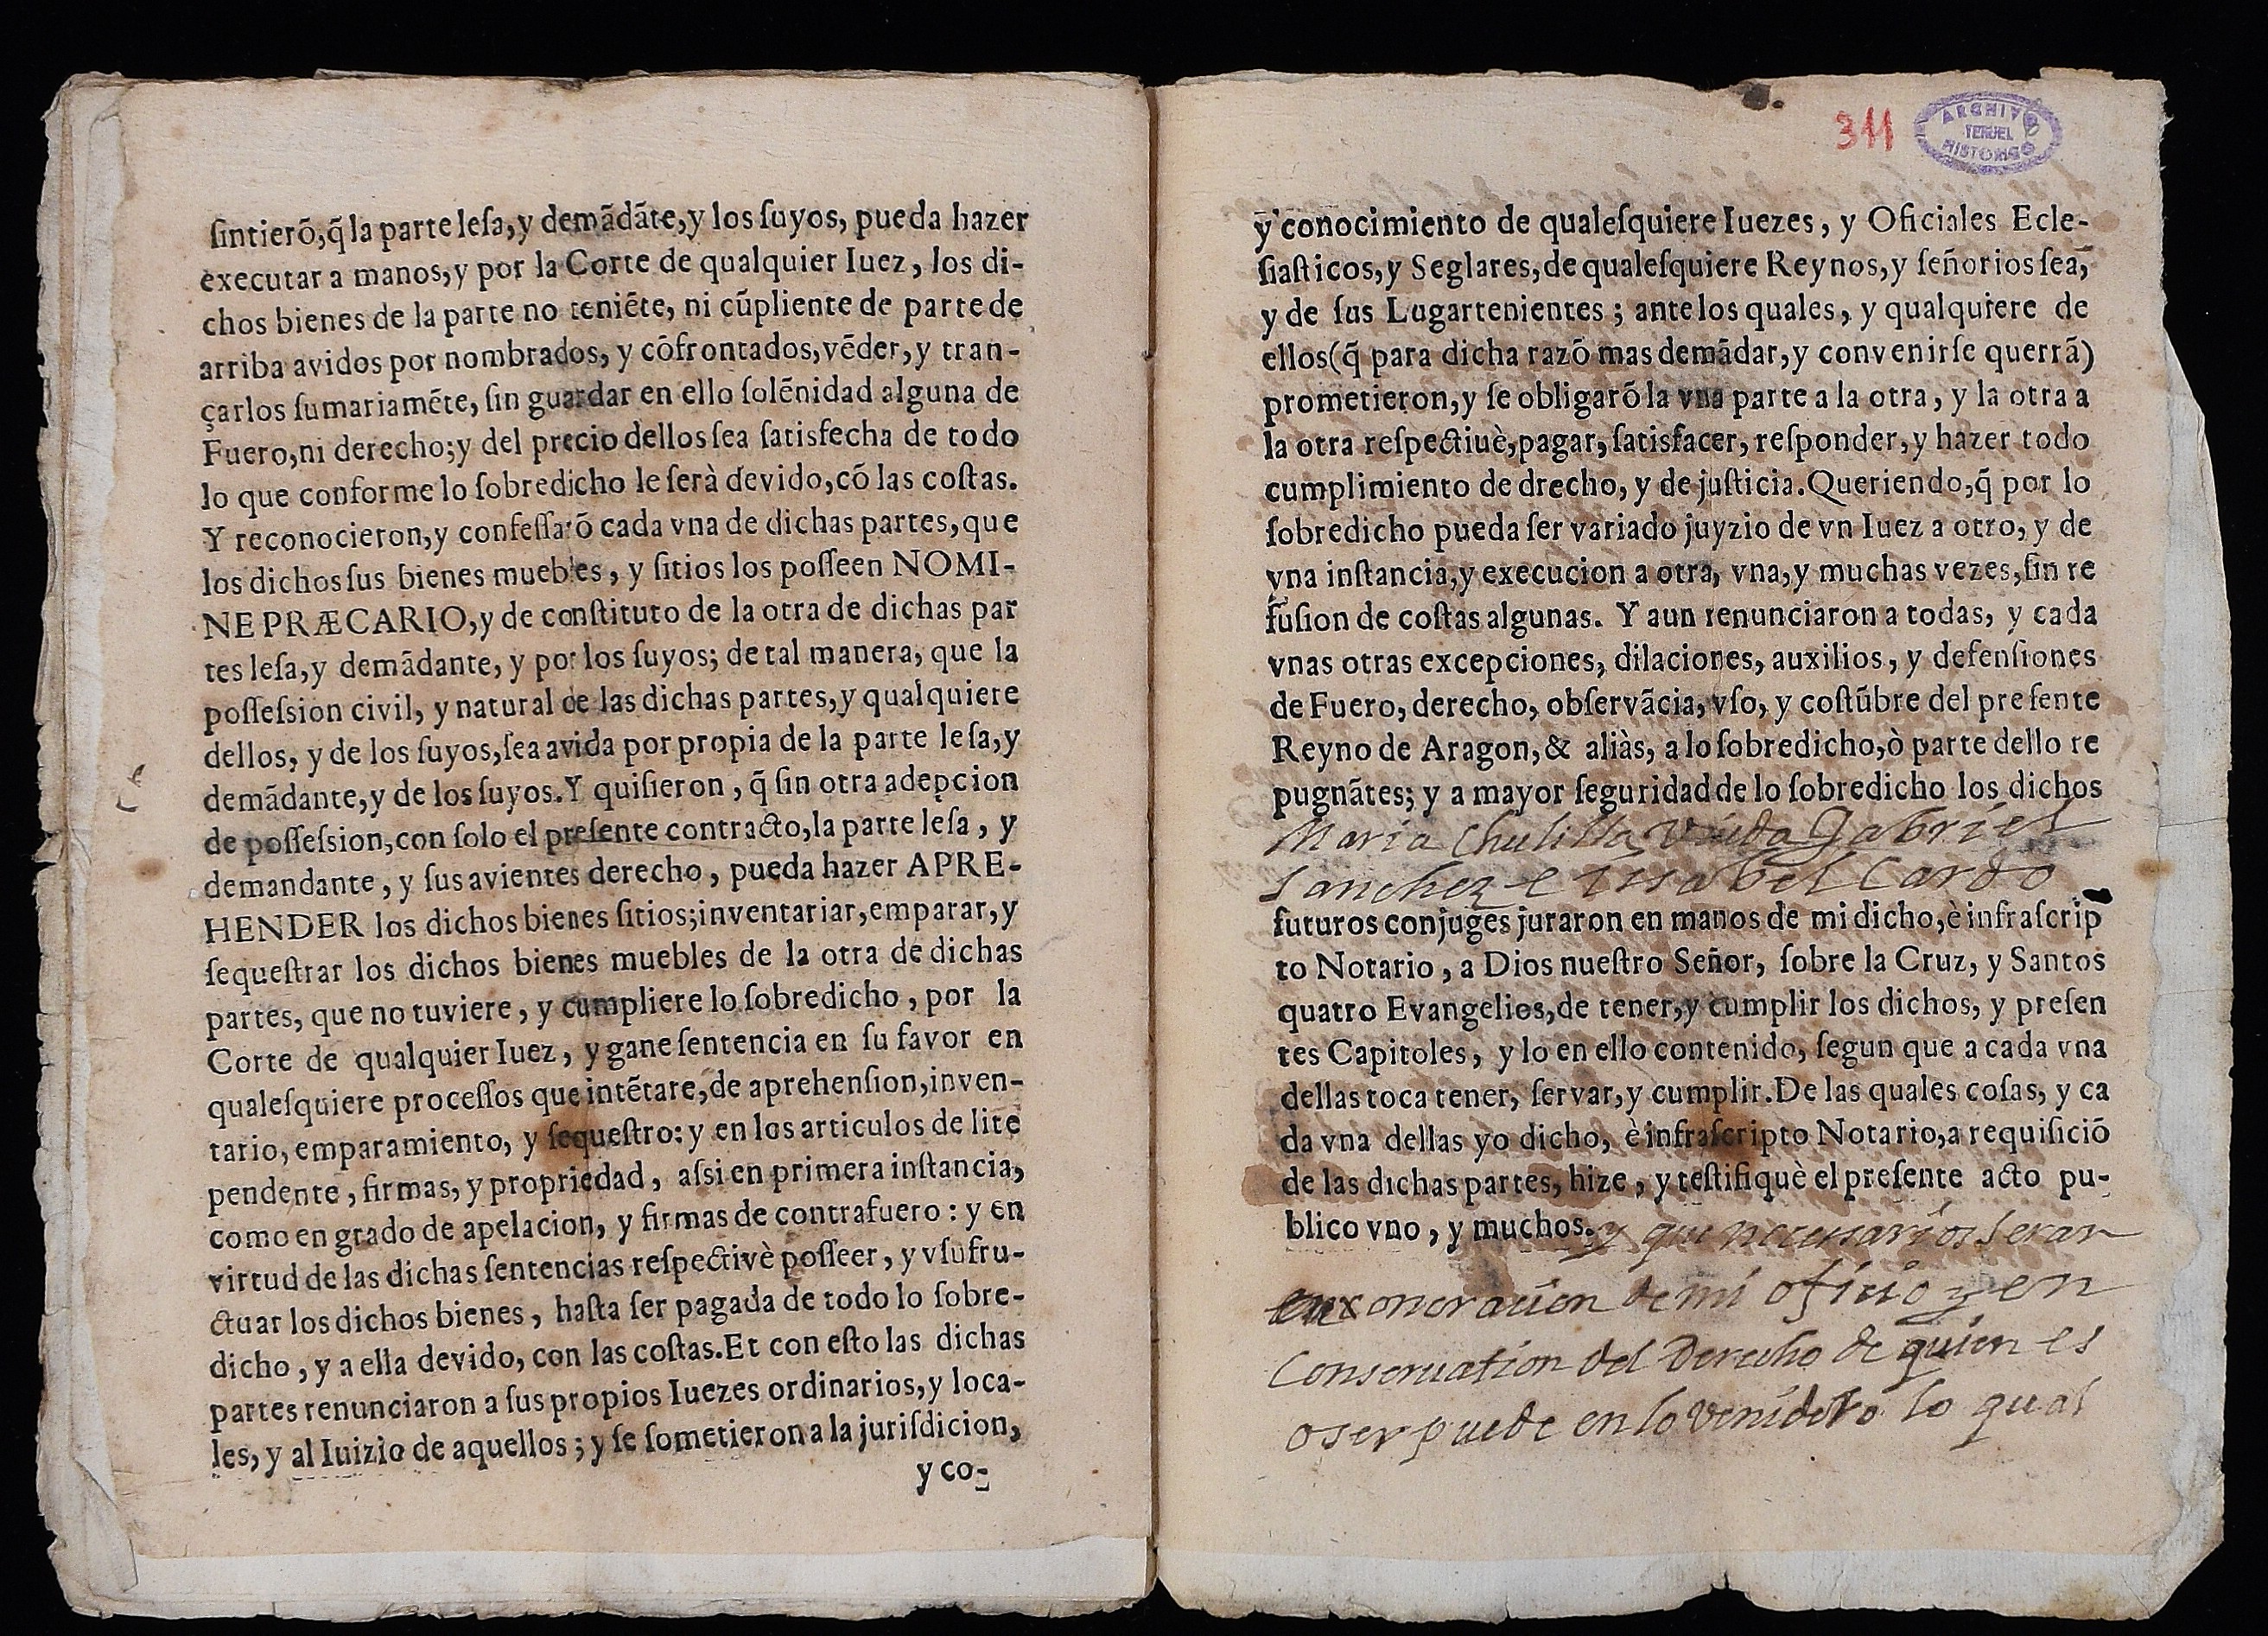 ſintierõ, q̃ la parte leſa, y demãdãte, y los ſuyos, pueda hazer
executar a manos, y por la Corte de qualquier Iuez, los di-
chos bienes de la parte no teniẽte, ni cũpliente de parte de
arriba avidos por nombrados, y cõfrontados, vẽder, y tran-
çarlos ſumariamẽte, ſin guardar en ello ſolẽnidad alguna de
Fuero, ni derecho; y del precio dellos ſea ſatisfecha de todo
lo que conforme lo ſobredicho le ſerà devido, cõ las coſtas.
Y reconocieron, y confeſſarõ cada vna de dichas partes, que
los dichos ſus bienes muebles, y ſitios los poſſeen NOMI-
NE PRÆCARIO, y de conſtituto de la otra de dichas par
tes leſa, y demãdante, y por los ſuyos; de tal manera, que la
poſſeſsion civil, y natural de las dichas partes, y qualquiere
dellos, y de los ſuyos, ſea avida por propia de la parte leſa, y
demãdante, y de los ſuyos. Y quiſieron, q̃ ſin otra adepcion
de poſſeſsion, con ſolo el preſente contracto, la parte leſa, y
demandante, y ſus avientes derecho, pueda hazer APRE-
HENDER los dichos bienes ſitios; inventariar, emparar, y
ſequeſtrar los dichos bienes muebles de la otra de dichas
partes, que no tuviere, y cumpliere lo ſobredicho, por la
Corte de qualquier Iuez, y gane ſentencia en ſu favor en
qualeſquiere proceſſos que intẽtare, de aprehenſion, inven-
tario, emparamiento, y ſequeſtro: y en los articulos de lite
pendente, firmas, y propriedad, aſsi en primera inſtancia,
como en grado de apelacion, y firmas de contrafuero: y en
virtud de las dichas ſentencias reſpectivè poſſeer, y vſufru-
ctuar los dichos bienes, haſta ſer pagada de todo lo ſobre-
dicho, y a ella devido, con las coſtas. Et con eſto las dichas
partes renunciaron a ſus propios Iuezes ordinarios, y loca-
les, y al Iuizio de aquellos; y ſe ſometieron a la juriſdicion,
y co-
311
ARCHIVO
TERUEL
HISTORICO
y conocimiento de qualeſquiere Iuezes, y Oficiales Ecle-
ſiaſticos, y Seglares, de qualeſquiere Reynos, y ſeñorios ſeã,
y de ſus Lugartenientes; ante los quales, y qualquiere de
ellos (q̃ para dicha razõ mas demãdar, y convenirſe querrã)
prometieron, y ſe obligarõ la vna parte a la otra, y la otra a
la otra reſpectiuè, pagar, ſatisfacer, reſponder, y hazer todo
cumplimiento de drecho, y de juſticia. Queriendo, q̃ por lo
ſobredicho pueda ſer variado juyzio de vn Iuez a otro, y de
vna inſtancia, y execucion a otra, vna, y muchas vezes, ſin re
fuſion de coſtas algunas. Y aun renunciaron a todas, y cada
vnas otras excepciones, dilaciones, auxilios, y defenſiones
de Fuero, derecho, obſervãcia, vſo, y coſtũbre del preſente
Reyno de Aragon, & aliàs, a lo ſobredicho, ò parte dello re
pugnãtes; y a mayor ſeguridad de lo ſobredicho los dichos
Maria Chulilla Viuda Gabriel
Sanchez e Ysabel Cardo
futuros conjuges juraron en manos de mi dicho, è infraſcrip
to Notario, a Dios nueſtro Señor, ſobre la Cruz, y Santos
quatro Evangelios, de tener, y cumplir los dichos, y preſen
tes Capitoles, y lo en ello contenido, ſegun que a cada vna
dellas toca tener, ſervar, y cumplir. De las quales coſas, y ca
da vna dellas yo dicho, è infraſcripto Notario, a requiſiciõ
de las dichas partes, hize, y teſtifiquè el preſente acto pu-
blico vno, y muchos. y que necessarios seran
en exoneracion de mi oficio y en
Conseruation del Derecho de quien es
o ser puede en lo venidero lo qual